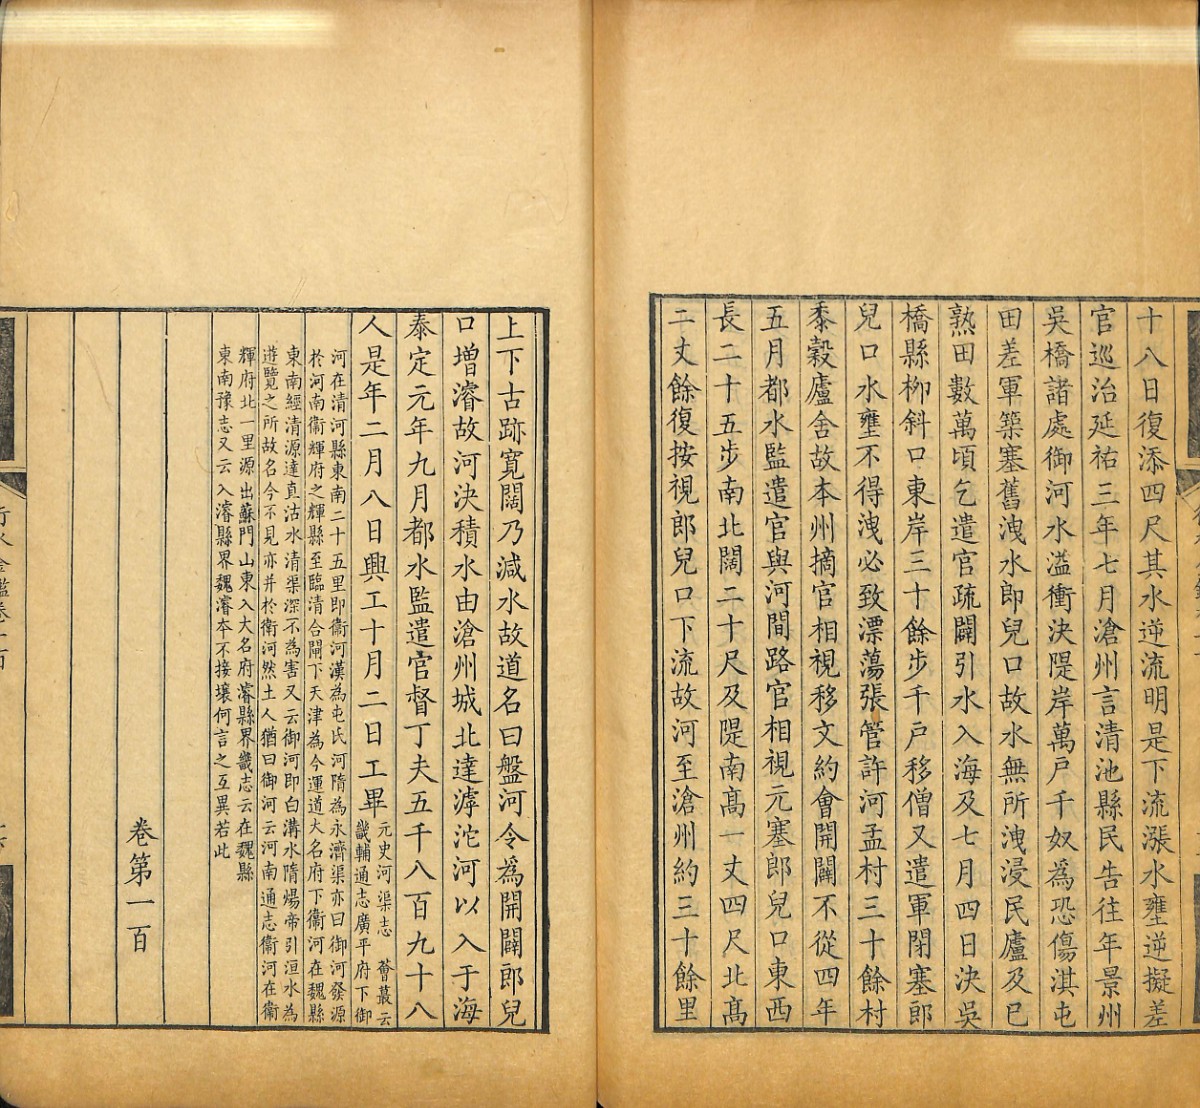 十八日復添四尺其水逆流明是下流漲水壅逆擬差
官巡治延祐三年七月滄州言清池縣民告往年景州
吳橋諸處御河水溢衝決隄岸萬戶千奴爲恐傷淇屯
田差軍築塞舊洩水郎兒口故水無所洩浸民廬及已
熟田數萬頃乞遣官疏闢引水入海及七月四日決吳
橋縣柳斜口東岸三十餘步千戶移僧又遣軍閉塞郎
兒口水壅不得洩必致漂蕩張管許河孟村三十餘村
黍穀廬舍故本州摘官相視移文約會開闢不從四年
五月都水監遣官與河間路官相視元塞郎兒口東西
長二十五步南北闊二十尺及隄南高一丈四尺北高
二丈餘復按視郎兒口下流故河至滄州約三十餘里
上下古跡寬闊乃減水故道名曰盤河令爲開闢郎兒
口增濬故河決積水由滄州城北達滹沱河以入于海
泰定元年九月都水監遣官督丁夫五千八百九十八
人是年二月八日興工十月二日工畢元史河渠志 薈蕞云
畿輔通志廣平府下御
河在清河縣東南二十五里即衞河漢為屯氏河隋為永濟渠亦曰御河發源
於河南衞輝府之輝縣至臨清合閘下天津為今運道大名府下衞河在魏縣
東南經清源達直沽水清渠深不為害又云御河即白溝水隋煬帝引洹水為
遊覽之所故名今不見亦并於衞河然土人猶曰御河云河南通志衞河在衞
輝府北一里源出蘇門山東入大名府濬縣界畿志云在魏縣
東南豫志又云入濬縣界魏濬本不接壤何言之互異若此
卷第一百
行水金鑑卷一百